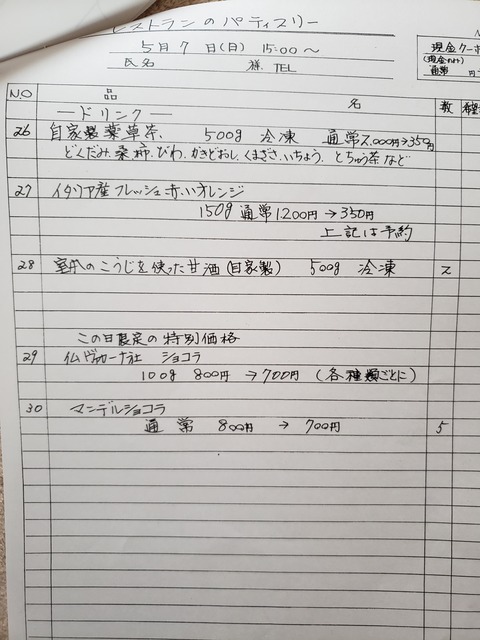 レストランのパティスリー
5月7日(日) 15:00〜
氏名 様 TEL
現金クーポ
通常 円
N.O 品 名 数
—ドリンク—
26 自家製薬草茶. 500g 冷凍 通常2,000円→350円
どくだみ.桑.柿.びわ.かきどおし.くまざさ.いちょう. とちゅう茶など
27 イタリア産フレッシュ赤いオレンジ
150g 通常1200円→350円
上記は予約
28 室戸のこうじを使った甘酒(自家製) 500g 冷凍 2
この日限定の特別価格
29 仏ヴァローナ社 ショコラ
100g 800円→700円 (各種類ごとに)
30 マンデルショコラ
通常 800円 → 700円 5